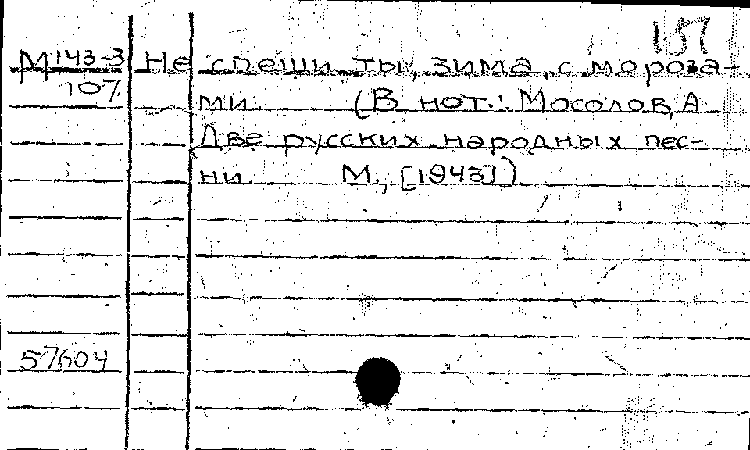 157
М 143-3 Не спеши ты, зима, с мороза-
107 ми. (В нот.: Мосолов, А.
Две русских народных пес-
ни. М., [1943])
57604